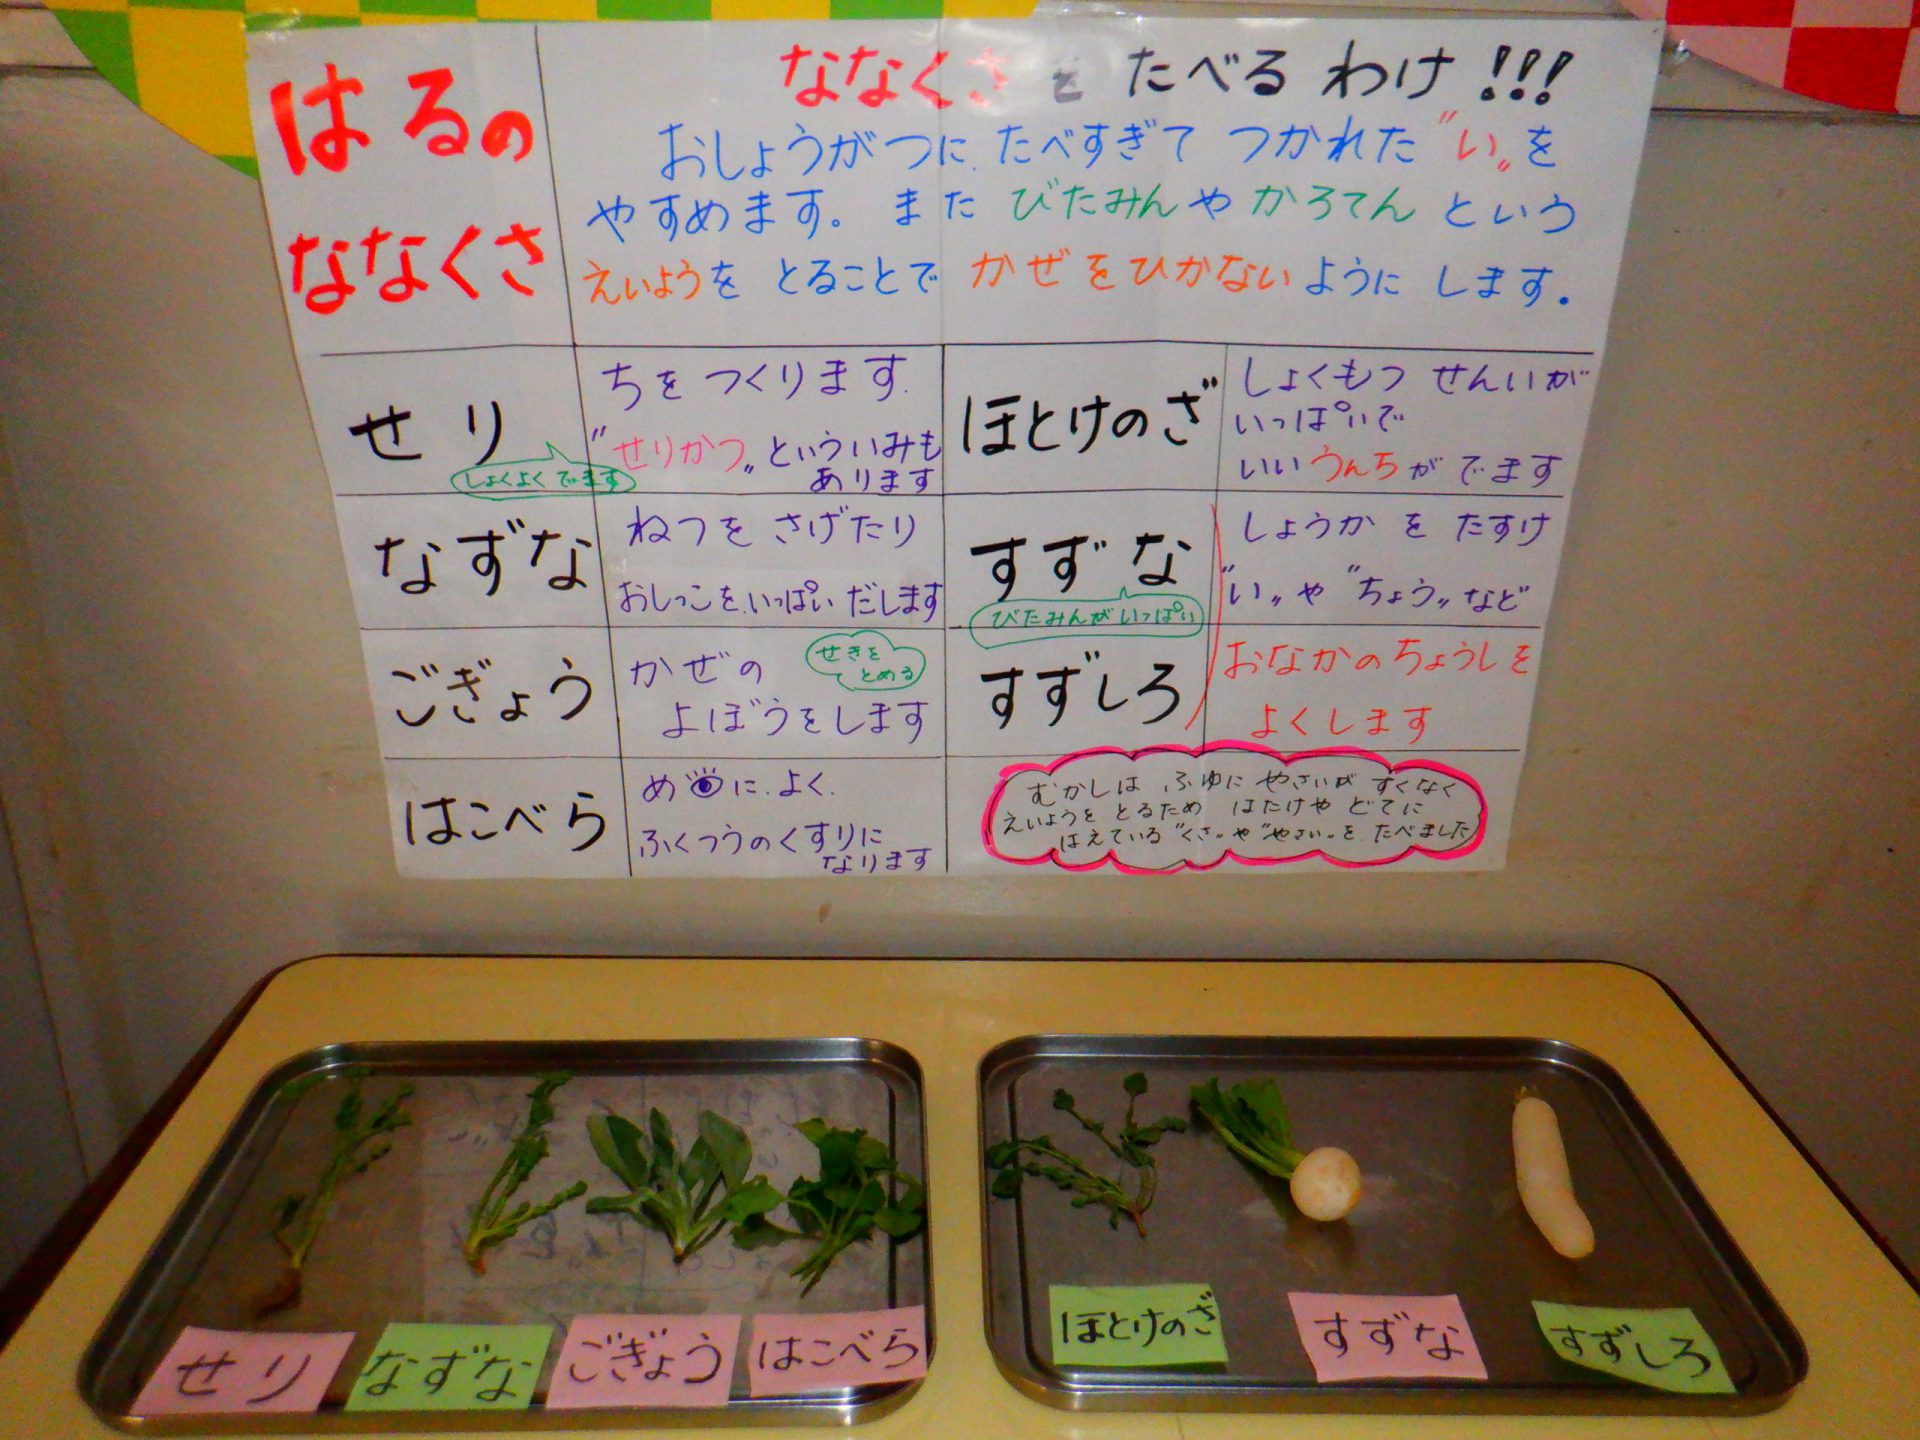 はるの
ななくさ
ななくさを たべる わけ!!!
おしょうがつに たべすぎて つかれた "い„を
やすめます。 また びたみんや かろてん という
えいようを とることで かぜをひかないように します。
せり
しょくよくでます
ちを つくります.
"せりかつ„ といういみも
あります
なずな
ねつを さげたり
おしっこを いっぱい だします
ごぎょう
かぜの
よぼうをします
せきを
とめる
はこべら
めに よく.
ふくつうのくすりに
なります
ほとけのざ
しょくもつ せんいが
いっぱいで
いい うんちが でます
すずな
びたみんがいっぱい
すずしろ
しょうか を たすけ
"い„ や "ちょう„ など
おなかのちょうしを
よくします
むかしは ふゆに やさいが すくなく
えいようを とるため はたけや どてに
はえている "くさ„や"やさい„を たべました
せり
なずな
ごぎょう
はこべら
ほとけのざ
すずな
すずしろ